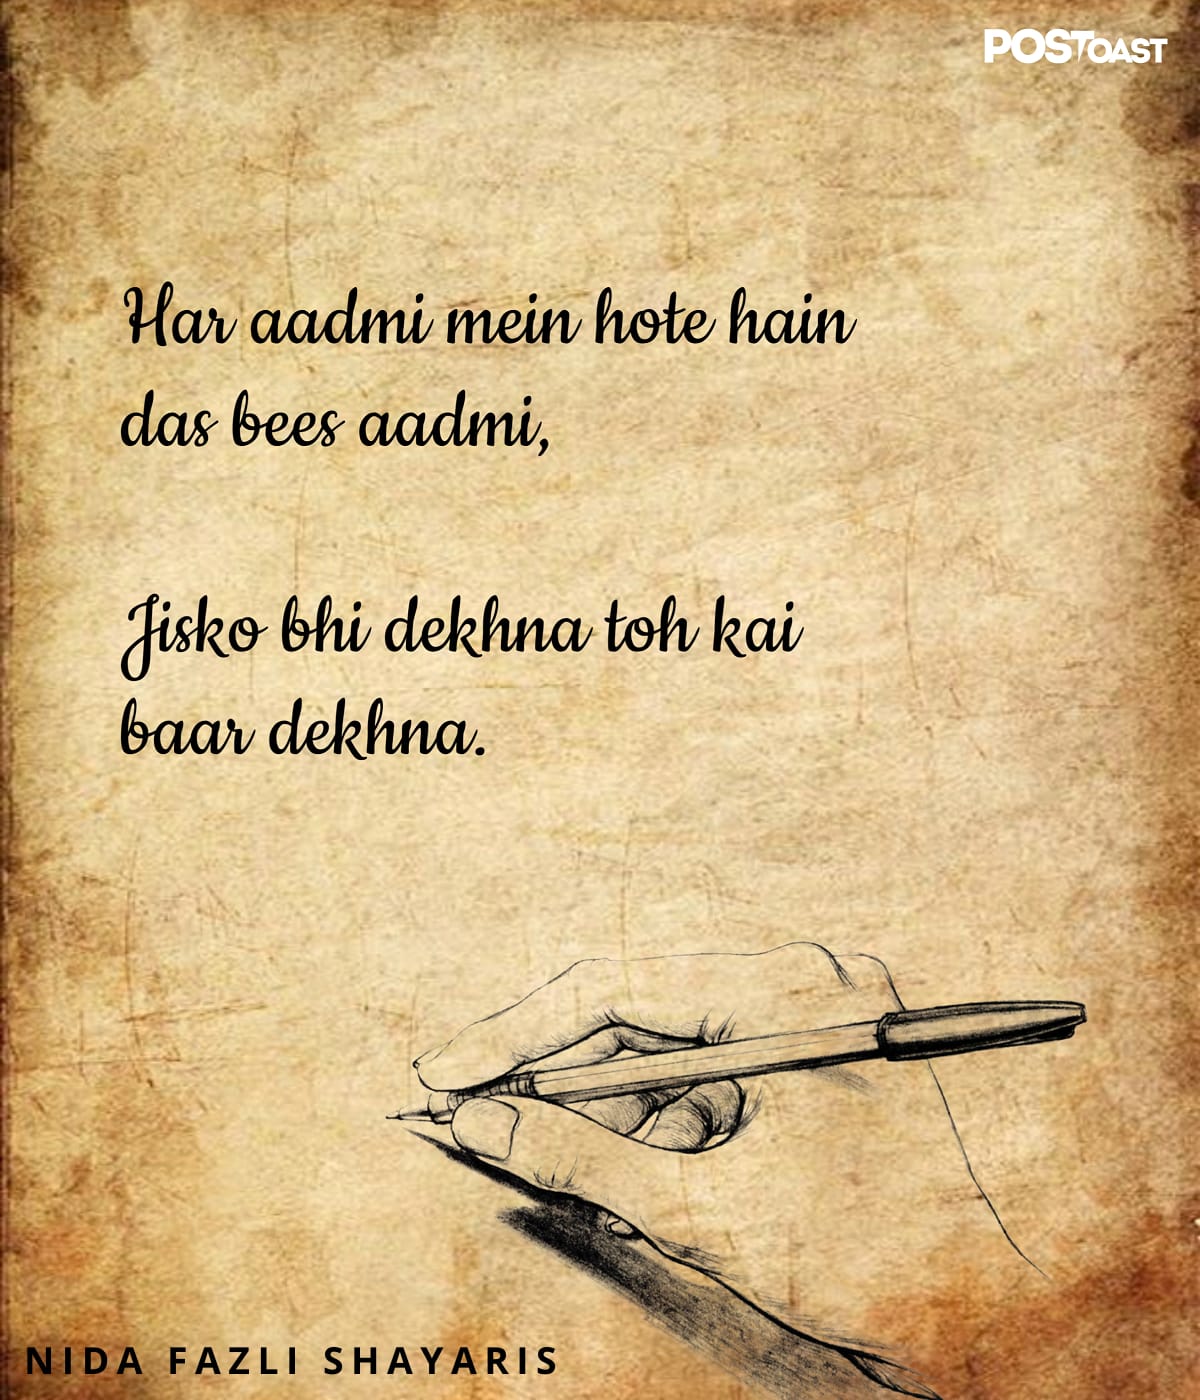 POSTOAST
Har aadmi mein hote hain
das bees aadmi,
Jisko bhi dekhna toh kai
baar dekhna.
NIDA FAZLI SHAYARIS